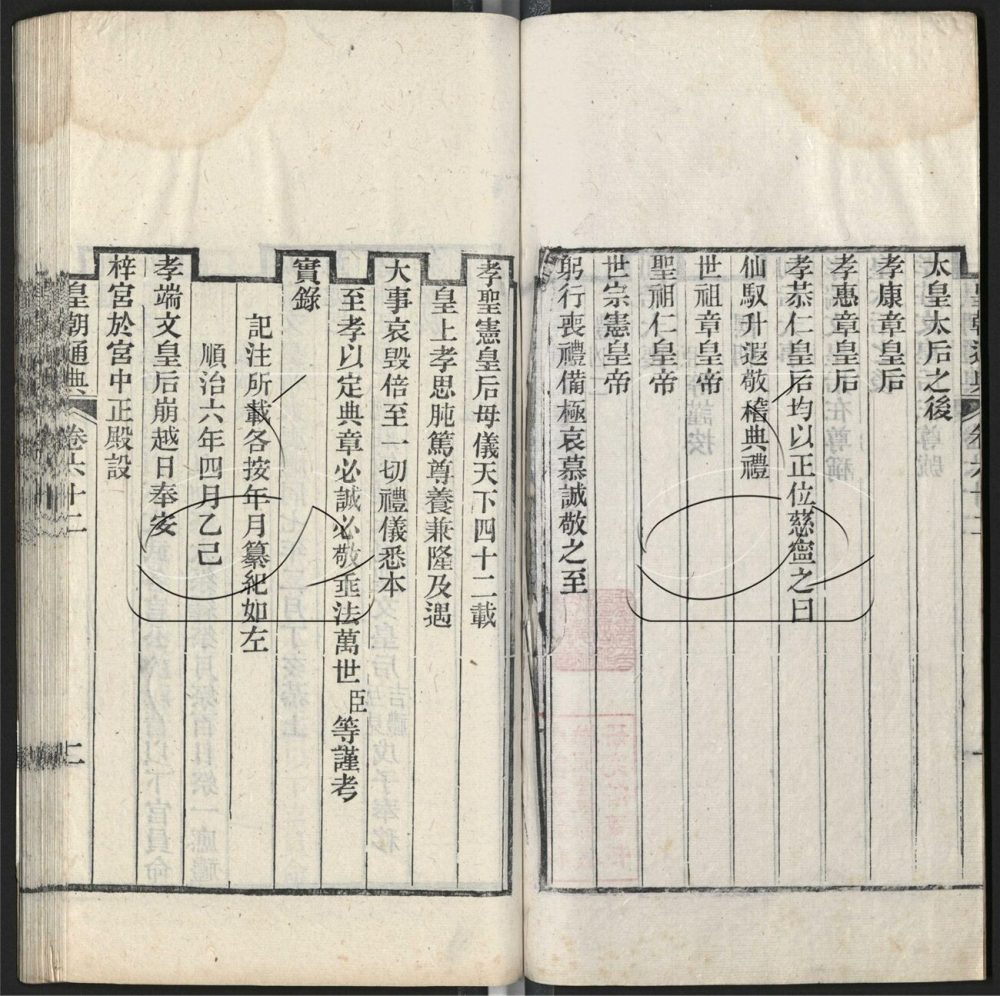 太皇太后之後
孝康章皇后
孝惠章皇后
孝恭仁皇后均以正位慈寧之日
仙馭升遐敬稽典禮
世祖章皇帝
聖祖仁皇帝
世宗憲皇帝
躬行喪禮備極哀慕誠敬之至
孝聖憲皇后母儀天下四十二載
皇上孝思肫篤尊養兼隆及遇
大事哀毀倍至一切禮儀悉本
至孝以定典章必誠必敬垂法萬世臣等謹考
實錄
記注所載各按年月纂紀如左
順治六年四月乙己
孝端文皇后崩越日奉安
梓宮於宮中正殿設
皇朝通典 卷六十二 七